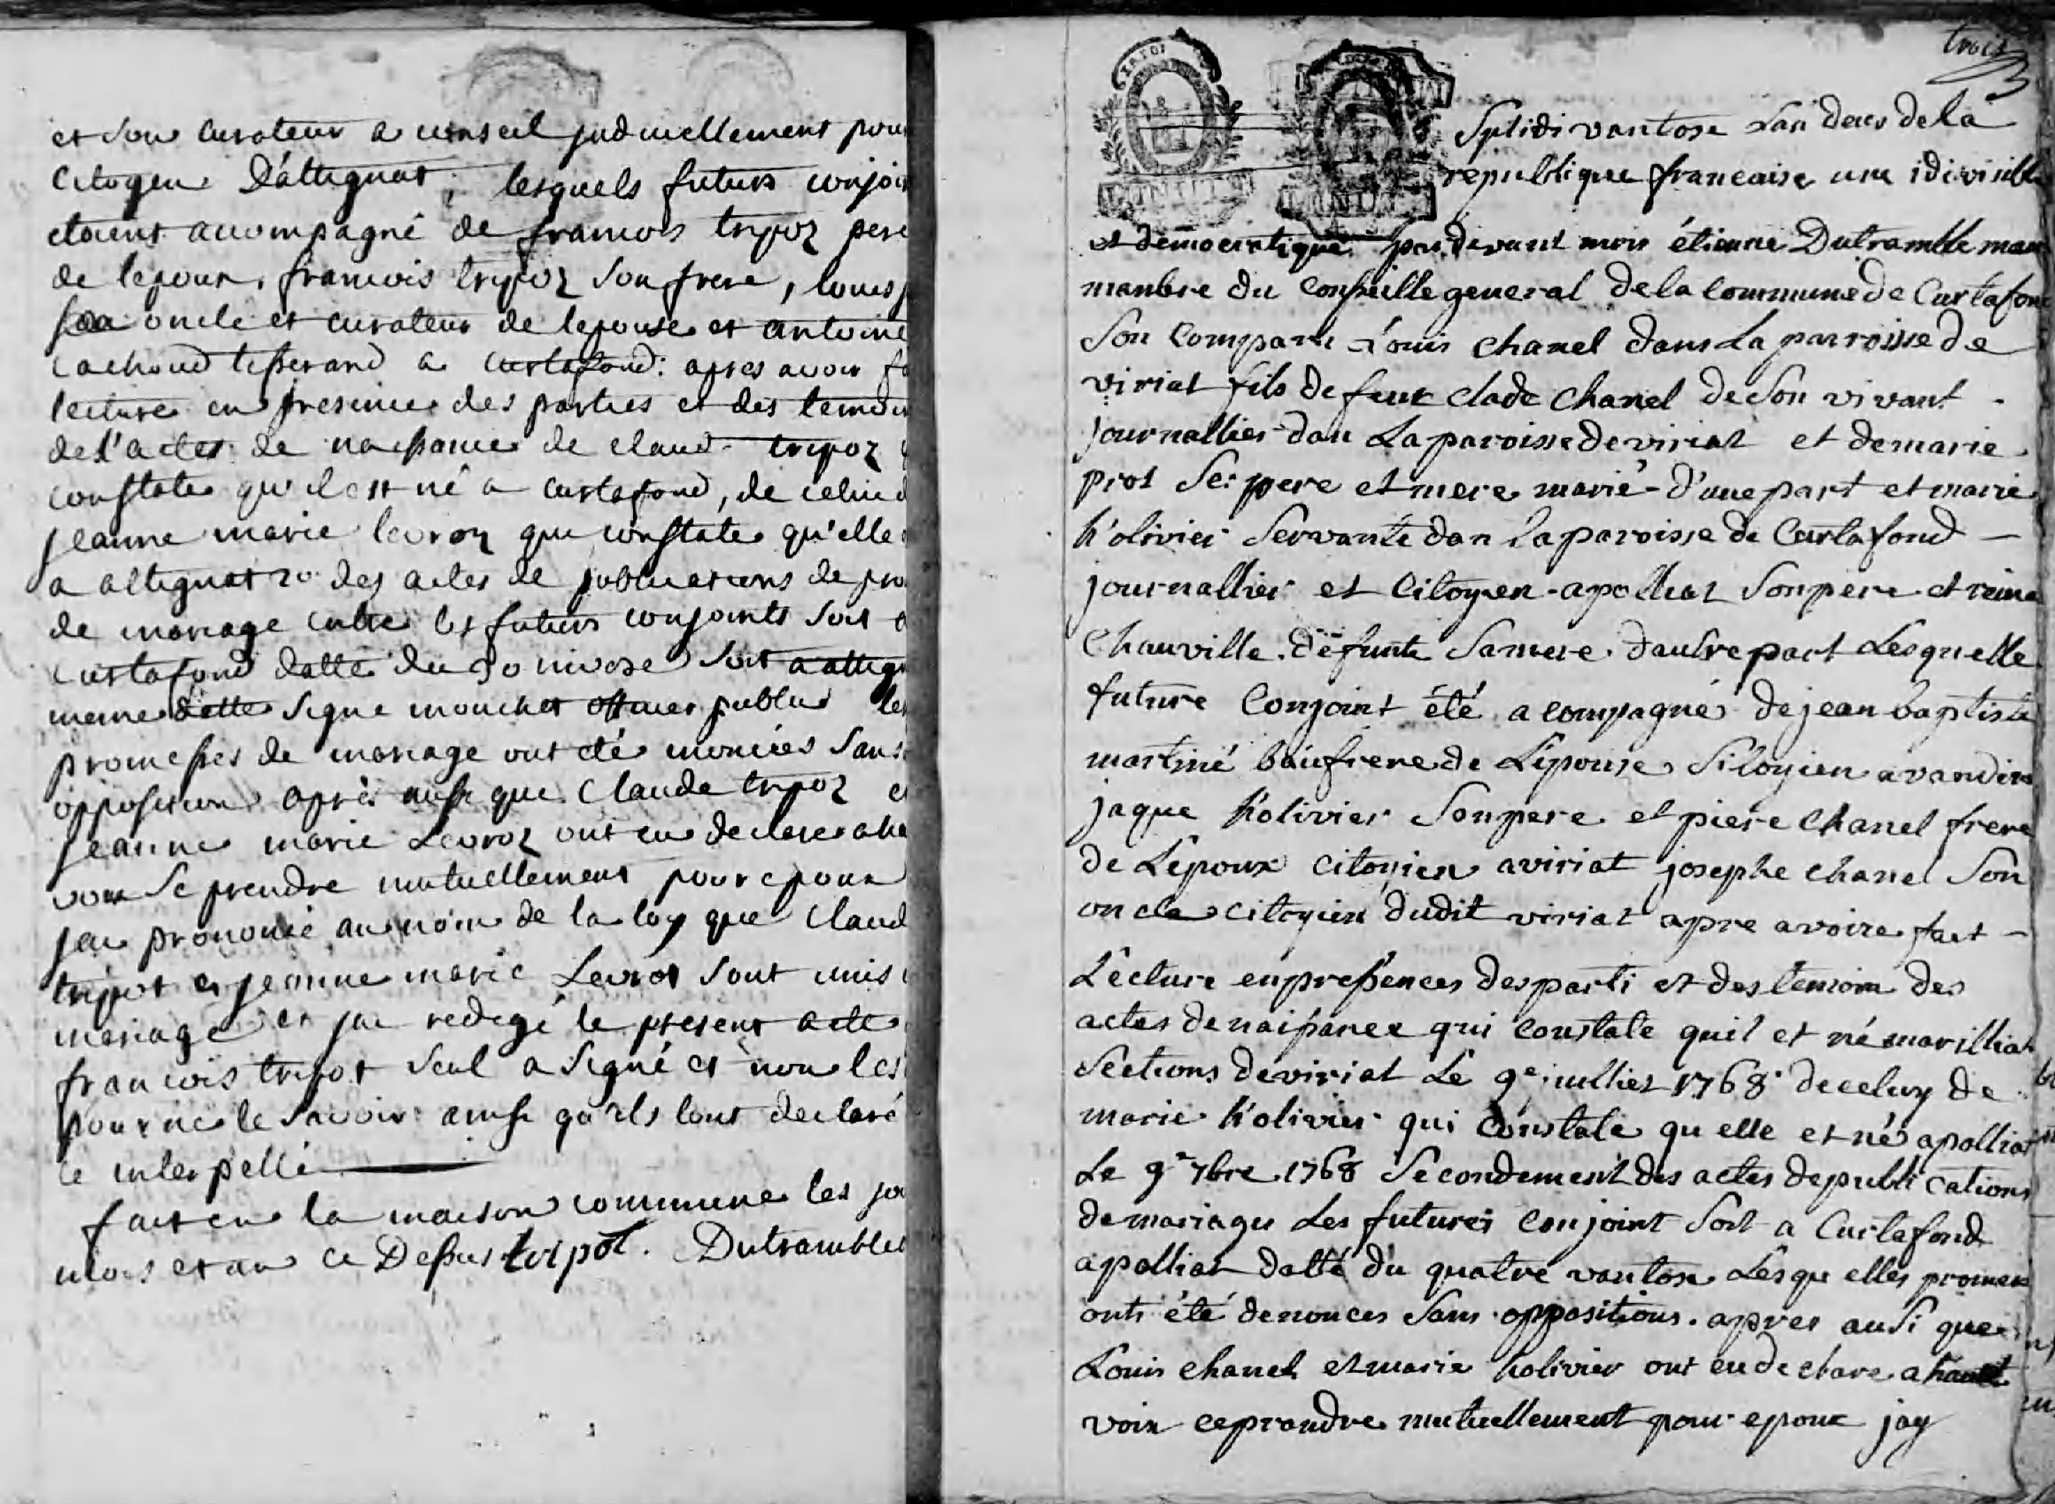 et son curateur a conseil judiciellement pour
Citoyen D'attignat, lesquels futurs conjoin
etoient accompagné de francois tripoz pere
de lepoux, francois tripoz son frere, louis
oncle et curateur de lepouse et antoine
Cachoud tisserand a Curtafond: apres avoir fa
lecture en presence des parties et des temoin
de l'actes de naissance de claud tripoz
constate qu'il est né a curtafond, de celui d
jeanne marie levroz que constate qu'elle
a attignat 2o des actes de publications de pro
de mariage entre les futurs conjoints soit a
curtafond datté du 30 nivose soit a attign
meme datte signe mouchet officier public les
promesses de mariage ont été enoncées sans
opposition après aussi que Claude tripoz et
jeanne marie Levroz ont eu declare a hau
voix se prendre mutuellement pour epoux
jai prononcé au nom de la loy que Claud
tripot et jeanne marie Levrot sont unis
mariage et jai redigé le present acte
francois tripot seul a signé et non les
pour ne le savoir ainsi qu'ils l'ont declaré
ce interpellé
fait en la maison commune les jo
mois et an ce Dessus tripot. Dutramblet
trois
Septidi vantose Lan deus dela
republique francaise une idivisible
et démocratique pardevant mois étienne Dutramble
manbre du Conseille general dela Commune de Curtafon
Son Comparu Louis Chanel dans La parroisse de
viriat fils de feut Clade Chanel de Son vivant
journallier dan La paroisse de viriat et de marie
prot Se: pere et mere marié d'une part et marie
h'olivier Servante dan La paroisse de Curtafond
journallier et Citoyen apolliat Sonpere et reine
Chauville défunte Samere dautre part Lesquelle
future Conjoint été acompagné de jean baptiste
martiné baufrere de L'épouse Sitoyien a vandin
jaque h'olivier Sonpere et piere Chanel frere
de L'époux Citoyien aviriat josephe Chanel Son
oncle Citoyien dudit viriat apre avoire fait
L'écture enpressences des parti et des temoin des
actes denaissance qui constate quil et né marilliat
Sections deviriat Le 9e juilliet 1768 deceluy de
marie h'olivier qui Constate qu elle et né apolliat
Le 9e 7bre 1768 Secondement des actes depublications
demariages Les futures Conjoint Soit a Curtafond
apolliat datté du quatre vantose Lesqu elles promes
onts été denonces Sans oppositions. apres ausi que
Louis Chanel et marie holivier ont eu de clare a haute
voix ceprandre mutuellement pour epoux jay